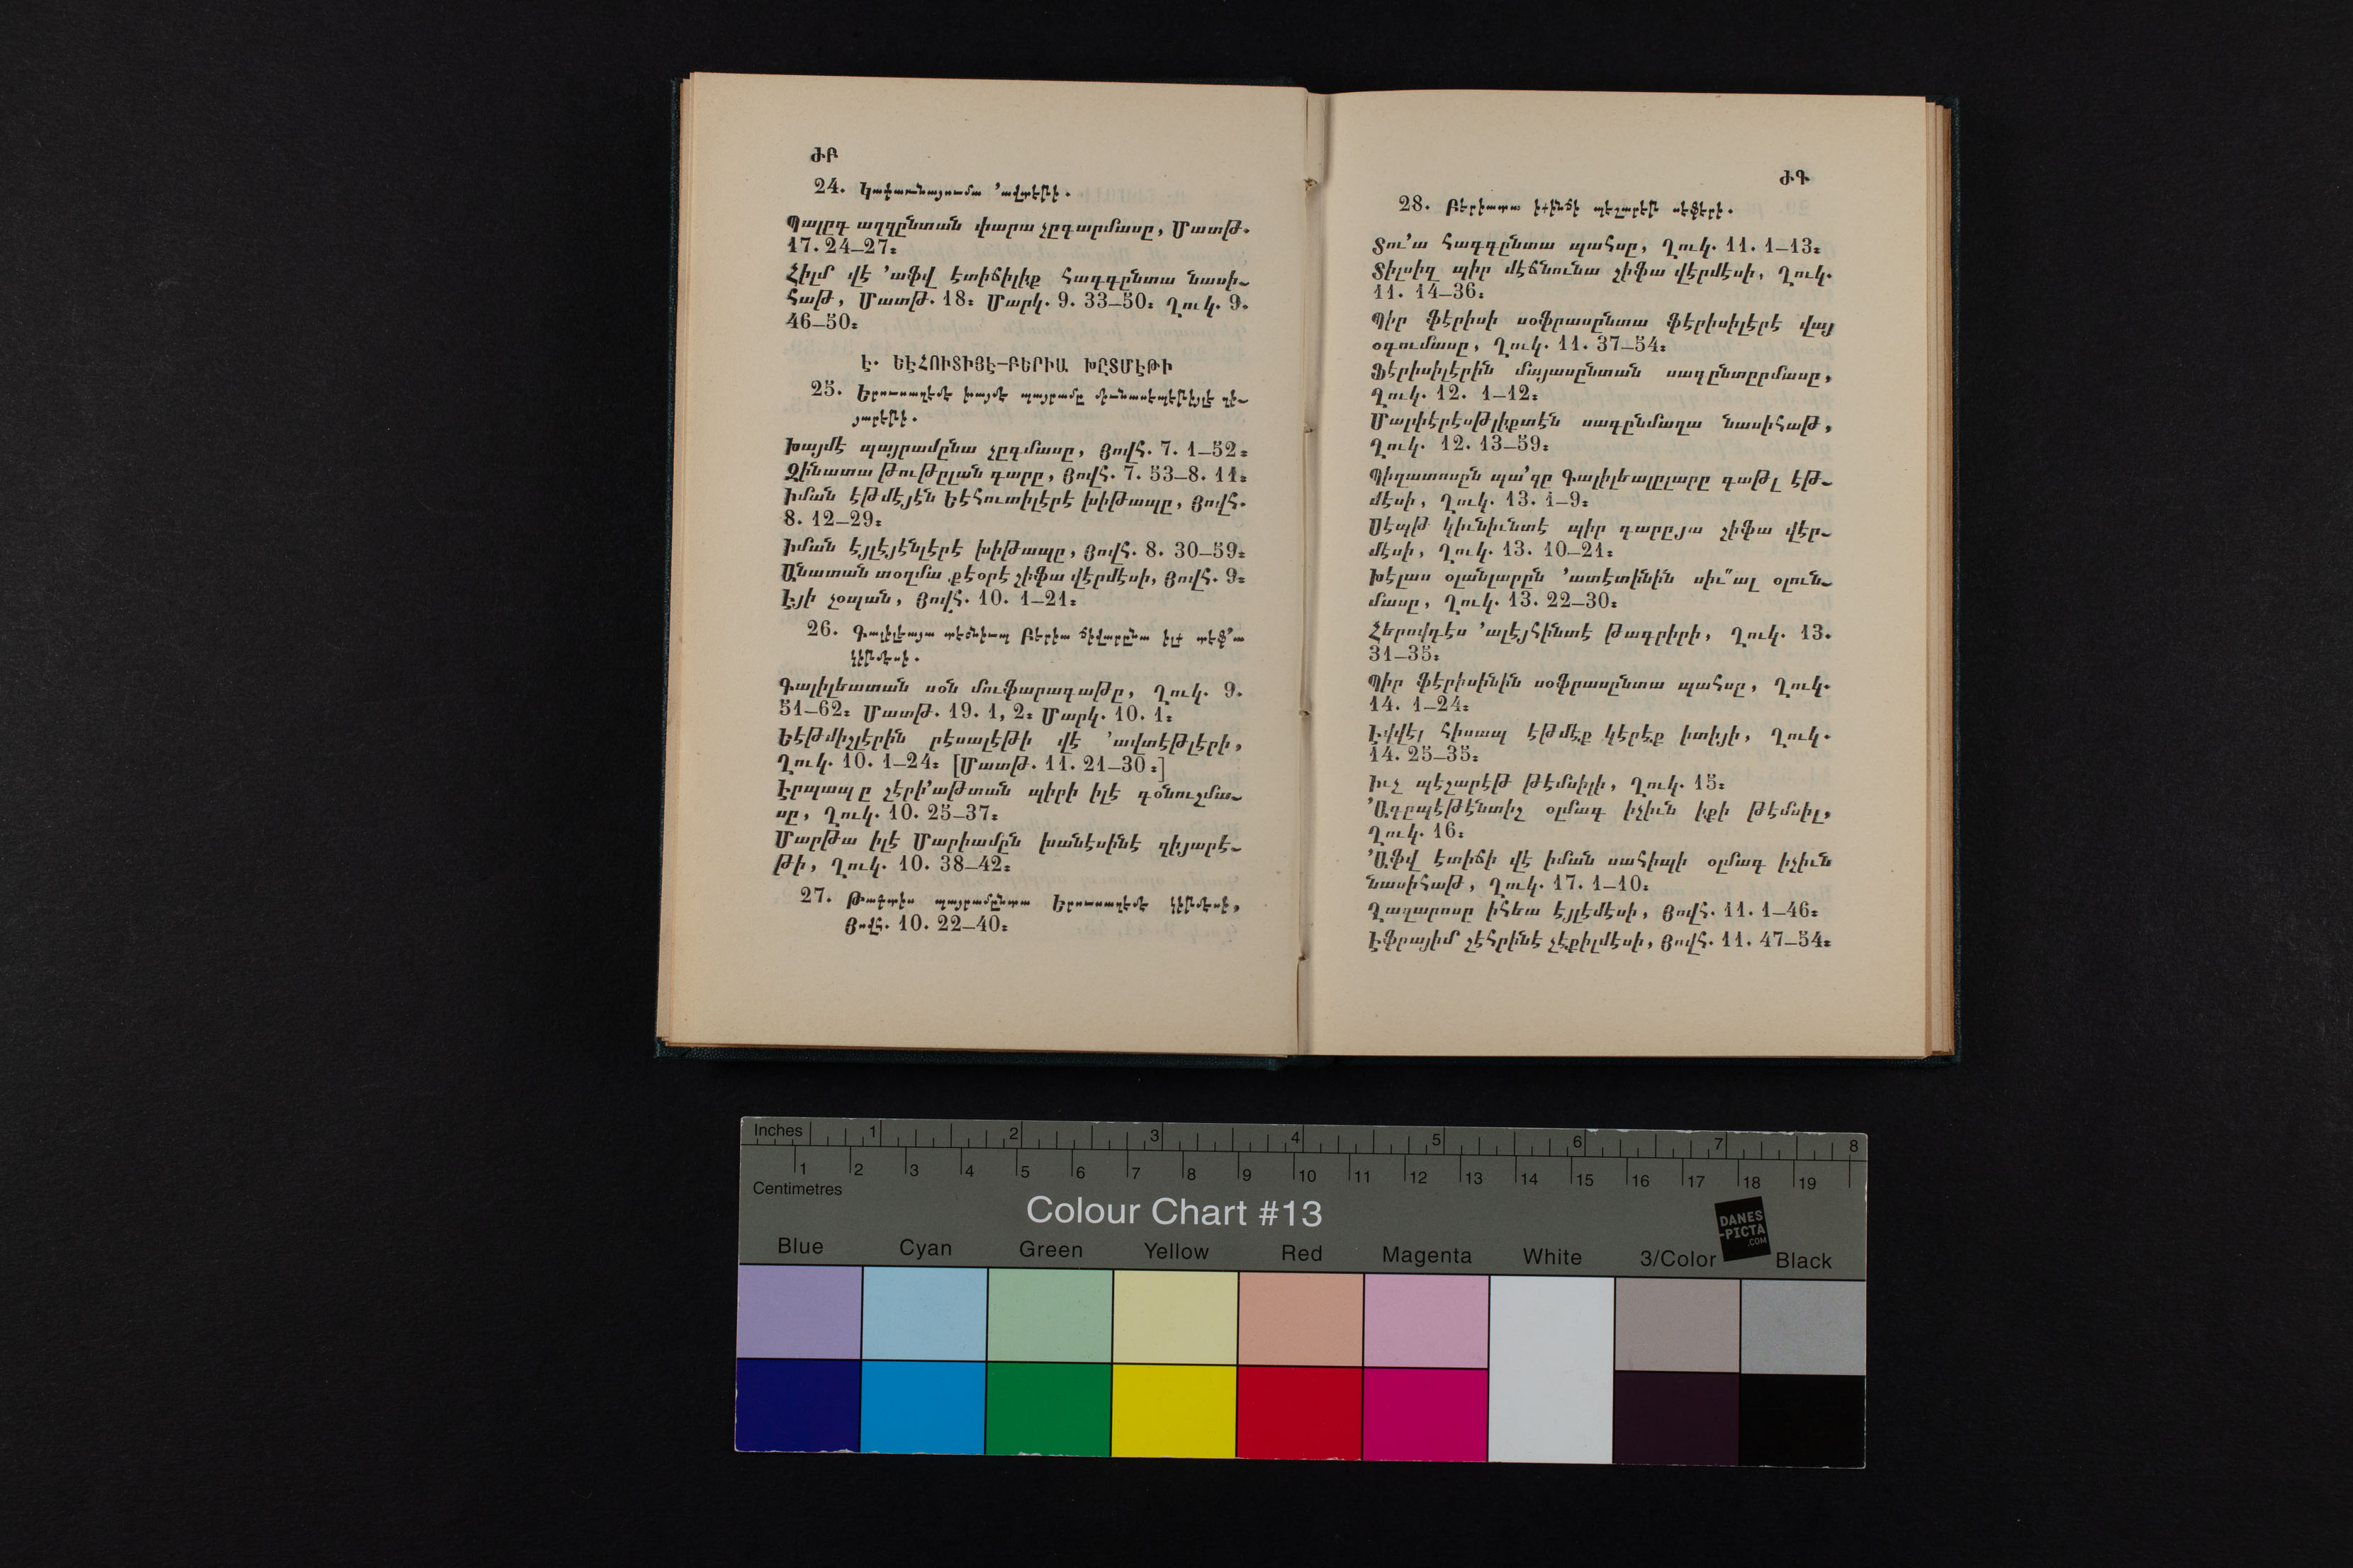 ԺԲ
24. Կափառնայումա ՚ավտէթի.
Պալըգ աղզընտան փարա չըգարմասը, Մատթ.
17. 24—27։
Հիլմ վէ ՚աֆվ էտիճիլիք հագգընտա նասի֊
հաթ, Մատթ. 18։ Մարկ. 9. 33—50։ Ղուկ. 9.
46—50։
Է. ԵԷՀՈՒՏԻՅԷ—ԲԵՐԻԱ ԽԸՏՄԷԹԻ
25. Երուսաղեմէ խայմէ պայրամը մունասէպէթիյլէ զի֊
յարէթի.
Խայմէ պայրամընա չըգմասը, Յովհ. 7. 1—52։
Զինատա թութըլան գարը, Յովհ. 7. 53—8. 11։
Իման էթմէյէն Եէհուտիլէրէ խիթապը, Յովհ.
8. 12—29։
Իման էյլէյէնլէրէ խիթապը, Յովհ. 8. 30—59։
Անատան տօղմա քէօրէ շիֆա վէրմէսի, Յովհ. 9։
Էյի չօպան, Յովհ. 10. 1—21։
26. Գալիլեայա տէօնիւպ Բերիա ճիվարընա իլք տէֆ՚ա
կիթմէսի.
Գալիլեատան սօն մուֆարագաթը, Ղուկ. 9.
51—62։ Մատթ. 19. 1, 2։ Մարկ. 10. 1։
Եէթմիշլէրին րէսալէթի վէ ՚ավտէթլէրի,
Ղուկ. 10. 1—24։ [Մատթ. 11. 21—30։]
Էրպապը շէրի՚աթտան պիրի իլէ գօնուշմա֊
սը, Ղուկ. 10. 25—37։
Մարթա իլէ Մարիամըն խանէսինէ զիյարէ֊
թի, Ղուկ. 10. 38—42։
27. պայրամընտա Երուսաղեմէ կիթմէսի,
Յովհ. 10. 22—40։
ԺԳ
28. Բերիատա իքինճի պէշարէթ սէֆէրի.
Տու՚ա հագգընտա պահսը, Ղուկ. 11. 1—13։
Տիլսիզ պիր մէճնունա շիֆա վէրմէսի, Ղուկ.
11. 14—36։
Պիր ֆէրիսի սօֆրասընտա ֆէրիսիլէրէ վայ
օգումասը, Ղուկ. 11. 37—54։
Ֆէրիսիլէրին մայասընտան սագընտըրմասը,
Ղուկ. 12. 1—12։
Մալփէրէսթլիքտէն սագընմաղա նասիհաթ,
Ղուկ. 12. 13—59։
Պիղատոսըն պա՚զը Գալիլեալըլարը գաթլ էթ֊
մէսի, Ղուկ. 13. 1—9։
Սէպթ կիւնիւնտէ պիր գարըյա շիֆա վէր֊
մէսի, Ղուկ. 13. 10—21։
Խէլաս օլանլարըն ՚ատէտինին սիւ՞ալ օլուն֊
մասը, Ղուկ. 13. 22—30։
Հերովդէս ՚ալէյհինտէ թագրիրի, Ղուկ. 13.
31—35։
Պիր ֆէրիսինին սօֆրասընտա պահսը, Ղուկ.
14. 1—24։
Էվվէլ հիսապ էթմէք կէրէք իտիյի, Ղուկ.
14. 25—35։
Իւչ պէշարէթ թէմսիլի, Ղուկ. 15։
՚Ագըպէթէնտիշ օլմագ իչիւն իքի թէմսիլ,
Ղուկ. 16։
՚Աֆվ էտիճի վէ իման սահիպի օլմագ իչիւն
նասիհաթ, Ղուկ. 17. 1—10։
Ղազարոսը իհեա էյլէմէսի, Յովհ. 11. 1—46։
Էֆրայիմ շէհրինէ չէքիլմէսի, Յովհ. 11. 47—54։
Inches 1 2 3 4 5 6 7 8
1 2 3 4 5 6 7 8 9 10 11 12 13 14 15 16 17 18 19
Centimetres
Colour Chart #13
DANES
-PICTA
.COM
Blue Cyan Green Yellow Red Magenta White 3/Color Black